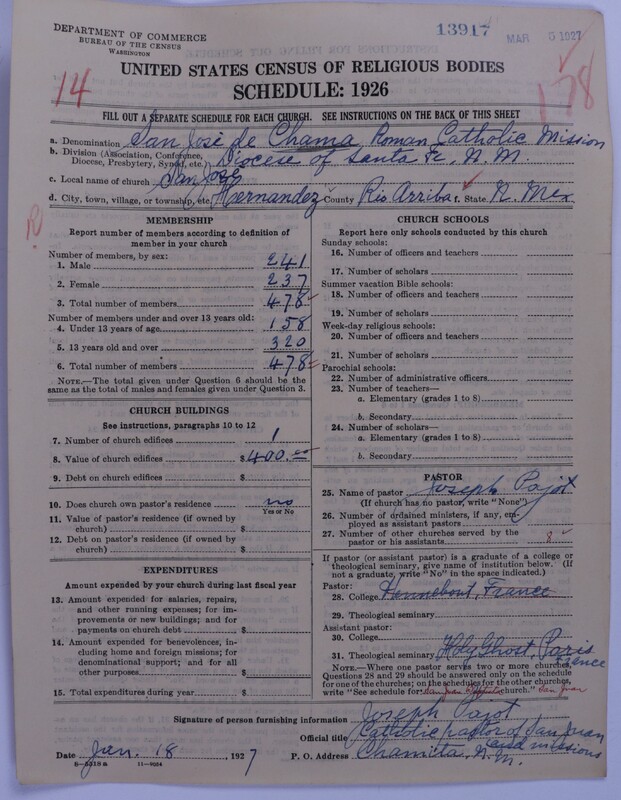 DEPARTMENT OF COMMERCE
BUREAU OF THE CENSUS
WASHINGTON
13917
MAR 5 1927
14
178
UNITED STATES CENSUS OF RELIGIOUS BODIES
SCHEDULE: 1926
FILL OUT A SEPARATE SCHEDULE FOR EACH CHURCH. SEE INSTRUCTIONS ON THE BACK OF THIS SHEET
a. Denomination San José de Chama Roman Catholic Mission
b. Division (Association, Conference, Diocese, Presbytery, Synod, etc.) Diocese of Santa Fe, N.M.
c. Local name of church San José
d. City, town, village, or township, etc. Hernandez County Rio Arriba f. State N. Mex
MEMBERSHIP
Report number of members according to definition of
member in your church
Number of members, by sex:
1. Male 241
2. Female 237
3. Total number of members 478
Number of members under and over 13 years old:
4. Under 13 years of age 158
5. 13 years old and over 320
6. Total number of members 478
NOTE.—The total given under Question 6 should be
the same as the total of males and females given under Question 3.
CHURCH BUILDINGS
See instructions, paragraphs 10 to 12
7. Number of church edifices 1
8. Value of church edifices $400.00
9. Debt on church edifices $
10. Does church own pastor's residence no
Yes or No
11. Value of pastor's residence (if owned by
church) $
12. Debt on pastor's residence (if owned by
church) $
EXPENDITURES
Amount expended by your church during last fiscal year
13. Amount expended for salaries, repairs,
and other running expenses; for im-
provements or new buildings; and for
payments on church debt $
14. Amount expended for benevolences, in-
cluding home and foreign missions; for
denominational support; and for all
other purposes $
15. Total expenditures during year $
CHURCH SCHOOLS
Report here only schools conducted by this church
Sunday schools:
16. Number of officers and teachers
17. Number of scholars
Summer vacation Bible schools:
18. Number of officers and teachers
19. Number of scholars
Week-day religious schools:
20. Number of officers and teachers
21. Number of scholars
Parochial schools:
22. Number of administrative officers
23. Number of teachers—
a. Elementary (grades 1 to 8)
b. Secondary
24. Number of scholars—
a. Elementary (grades 1 to 8)
b. Secondary
PASTOR
25. Name of pastor Joseph Pajot
(If church has no pastor, write "None")
26. Number of ordained ministers, if any, em-
ployed as assistant pastors
27. Number of other churches served by the
pastor or his assistants 8
If pastor (or assistant pastor) is a graduate of a college or
theological seminary, give name of institution below. (If
not a graduate, write "No" in the space indicated.)
Pastor:
28. College Hennebout, France
29. Theological seminary
Assistant pastor:
30. College
31. Theological seminary Holy Ghost, Paris
France
NOTE.—Where one pastor serves two or more churches,
Questions 28 and 29 should be answered only on the schedule
for one of the churches; on the schedules for the other churches,
write "See schedule for San Juan church." San Juan
Signature of person furnishing information Joseph Pajot
Official title Catholic pastor of San Juan
and missions
Date Jan. 18, 1927 P. O. Address Chamita, N.M.
8-5318 a 11-9064